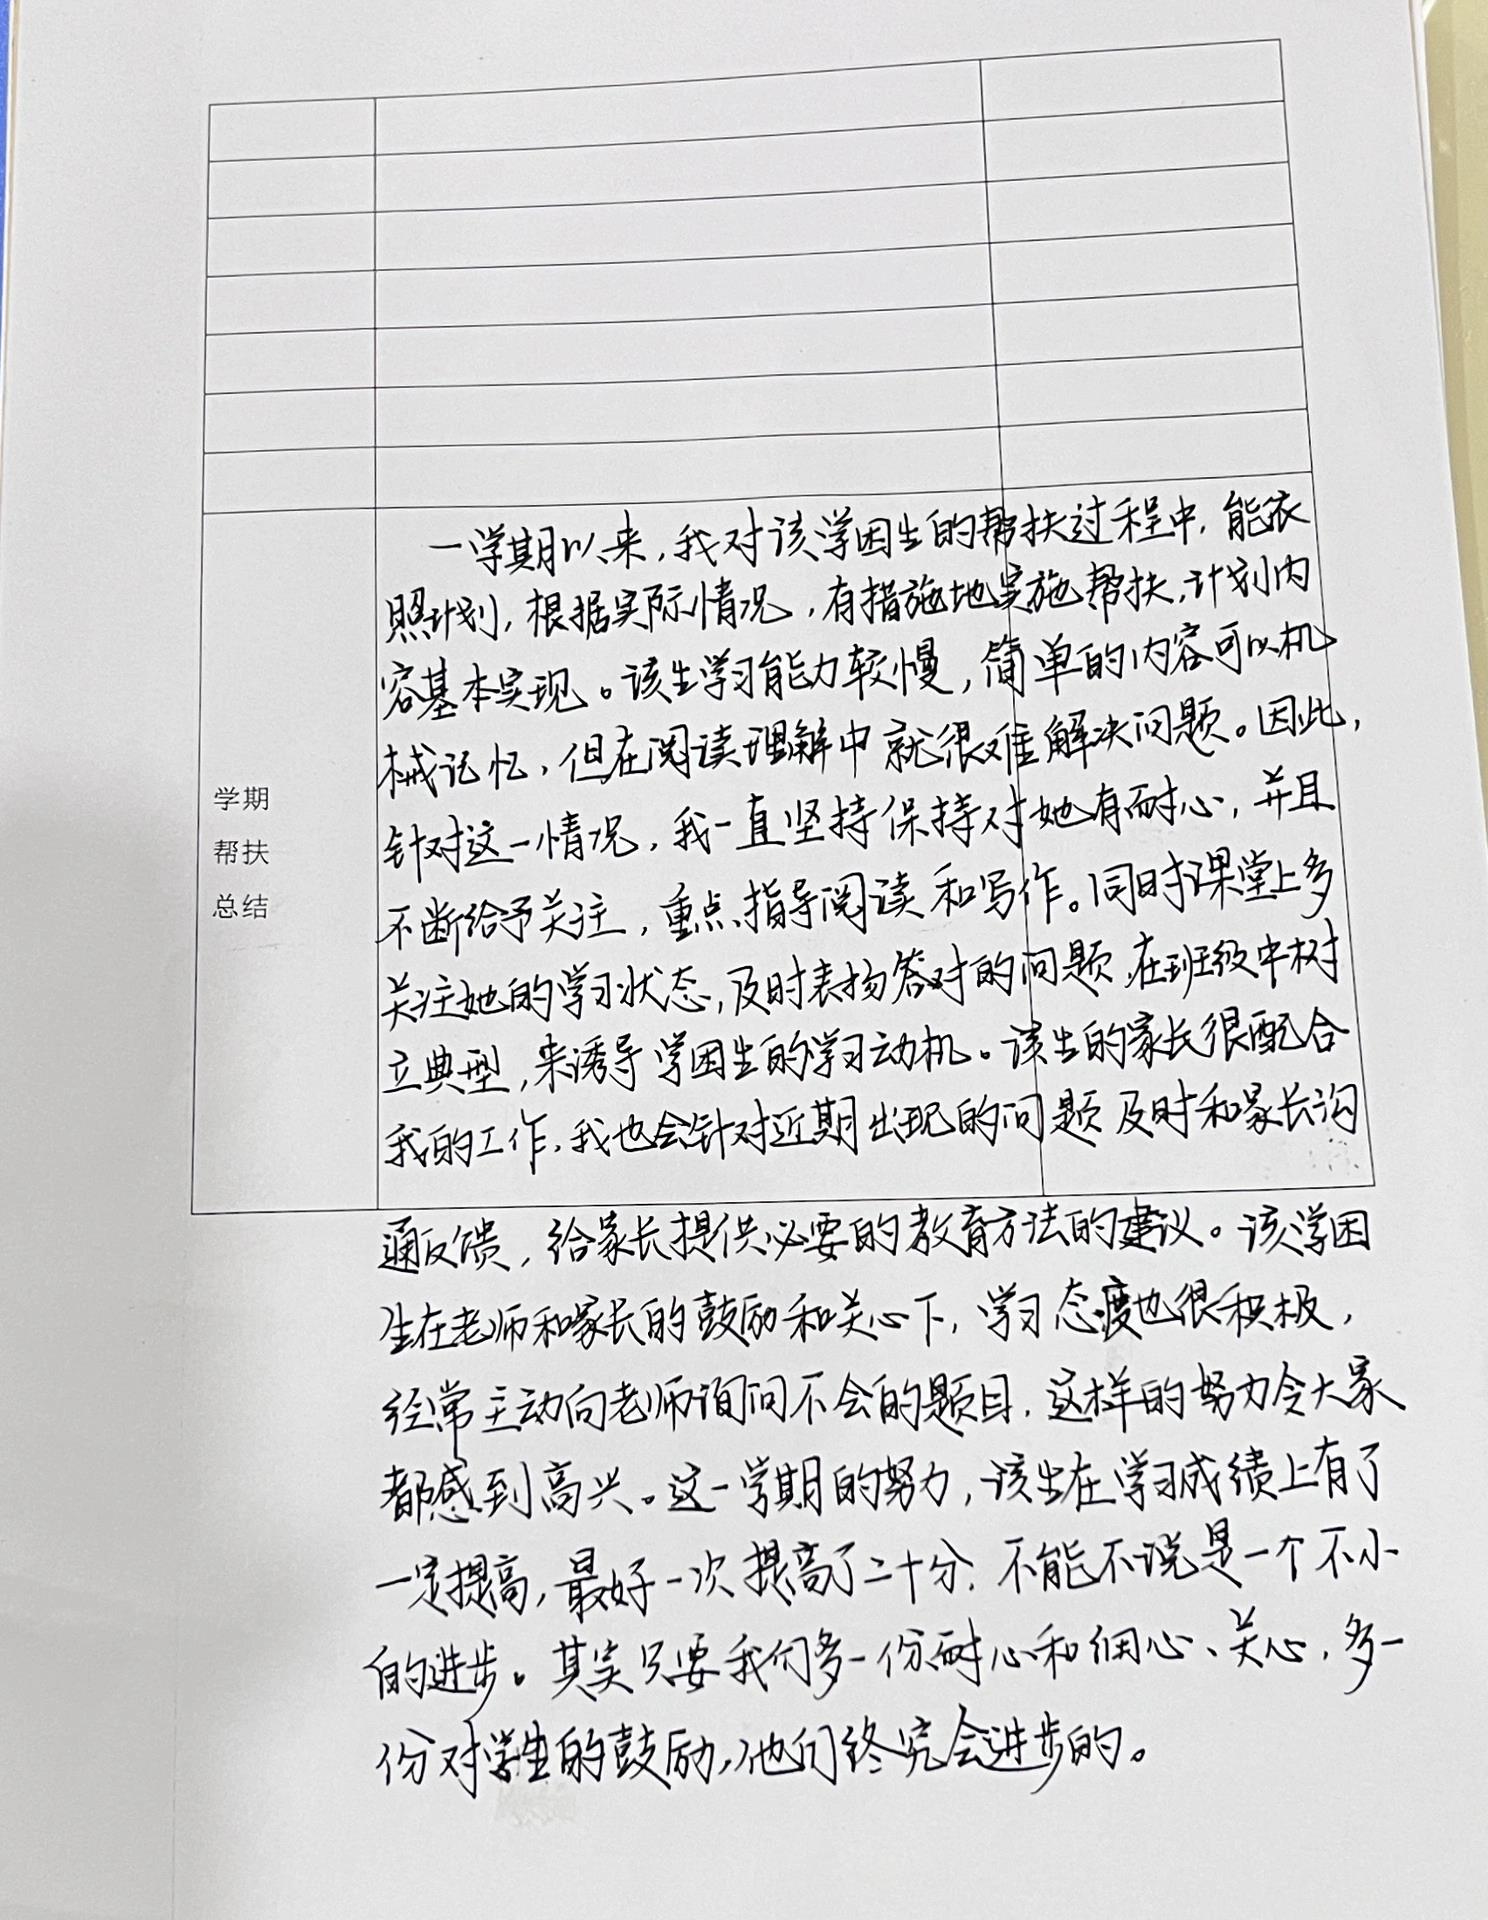 学期
帮扶
总结
一学期以来，我对该学困生的帮扶过程中，能依
照计划，根据实际情况，有措施地实施帮扶，计划内
容基本实现。该生学习能力较慢，简单的内容可以机
械记忆，但在阅读理解中就很难解决问题。因此，
针对这一情况，我一直坚持保持对她有耐心，并且
不断给予关注，重点指导阅读和写作。同时课堂上多
关注她的学习状态，及时表扬答对的问题，在班级中树
立典型，来诱导学困生的学习动机。该生的家长很配合
我的工作，我也会针对近期出现的问题及时和家长沟
通反馈，给家长提供必要的教育方法的建议。该学困
生在老师和家长的鼓励和关心下，学习态度也很积极，
经常主动向老师询问不会的题目，这样的努力令大家
都感到高兴。这一学期的努力，该生在学习成绩上有了
一定提高，最好一次提高了二十分，不能不说是一个不小
的进步。其实只要我们多一份耐心和细心、关心，多一
份对学生的鼓励，他们终究会进步的。